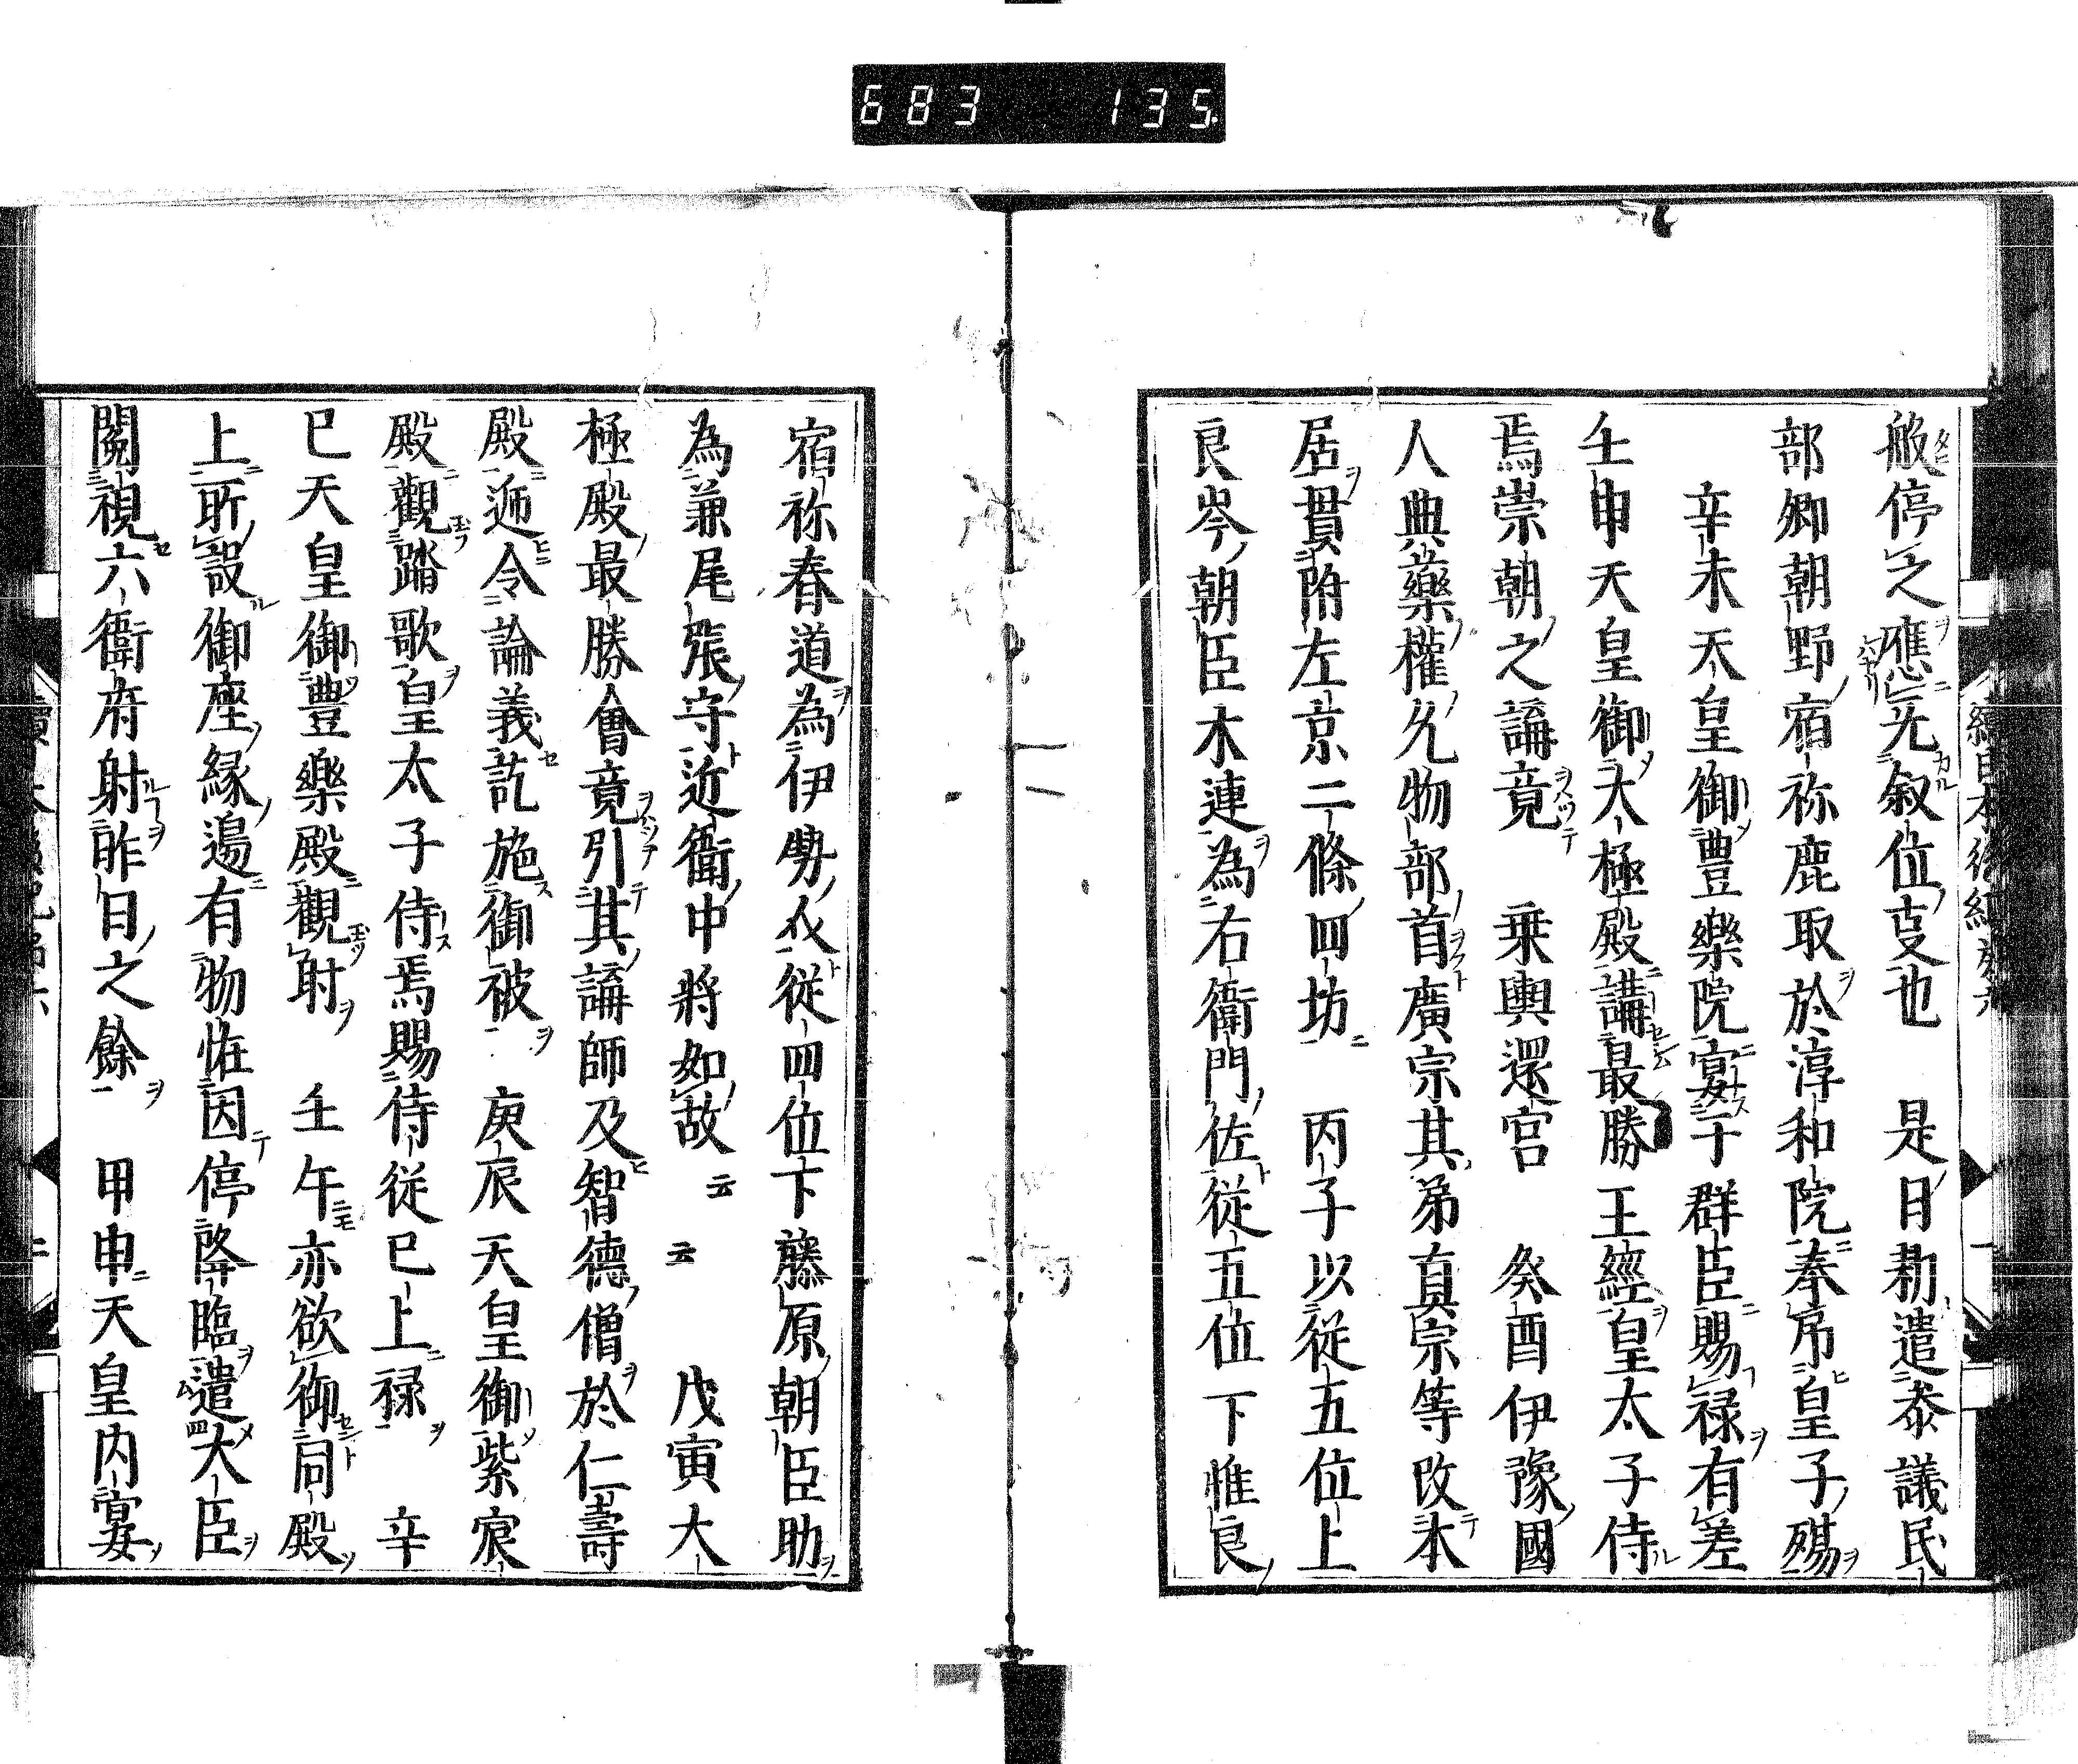 683 135
艌停之應先叙位支也 是日勑遣叅議民
部卿朝野宿祢鹿取於淳和院奉吊皇子殤
辛未天皇御豊樂院宴于群臣賜禄有差
壬申天皇御大極殿講最勝王經皇太子侍
焉崇朝之講竟 乗輿還宮 癸酉伊豫國
人典藥權允物部首廣宗其弟真宗等改本
居貫附左京二條四坊 丙子以從五位上
良岑朝臣木連為右衛門佐從五位下惟良
宿祢春道為伊勢介從四位下藤原朝臣助
為兼尾張守近衛中將如故云云 戊寅大
極殿最勝會竟引其講師及智德僧於仁壽
殿逓令論義訖施御被 庚辰天皇御紫宸
殿觀踏歌皇太子侍焉賜侍從已上禄 辛
巳天皇御豊樂殿觀射 壬午亦欲御同殿
上所設御座縁邊有物恠因停降臨遣大臣
閲視六衛府射昨日之餘 甲申天皇内宴